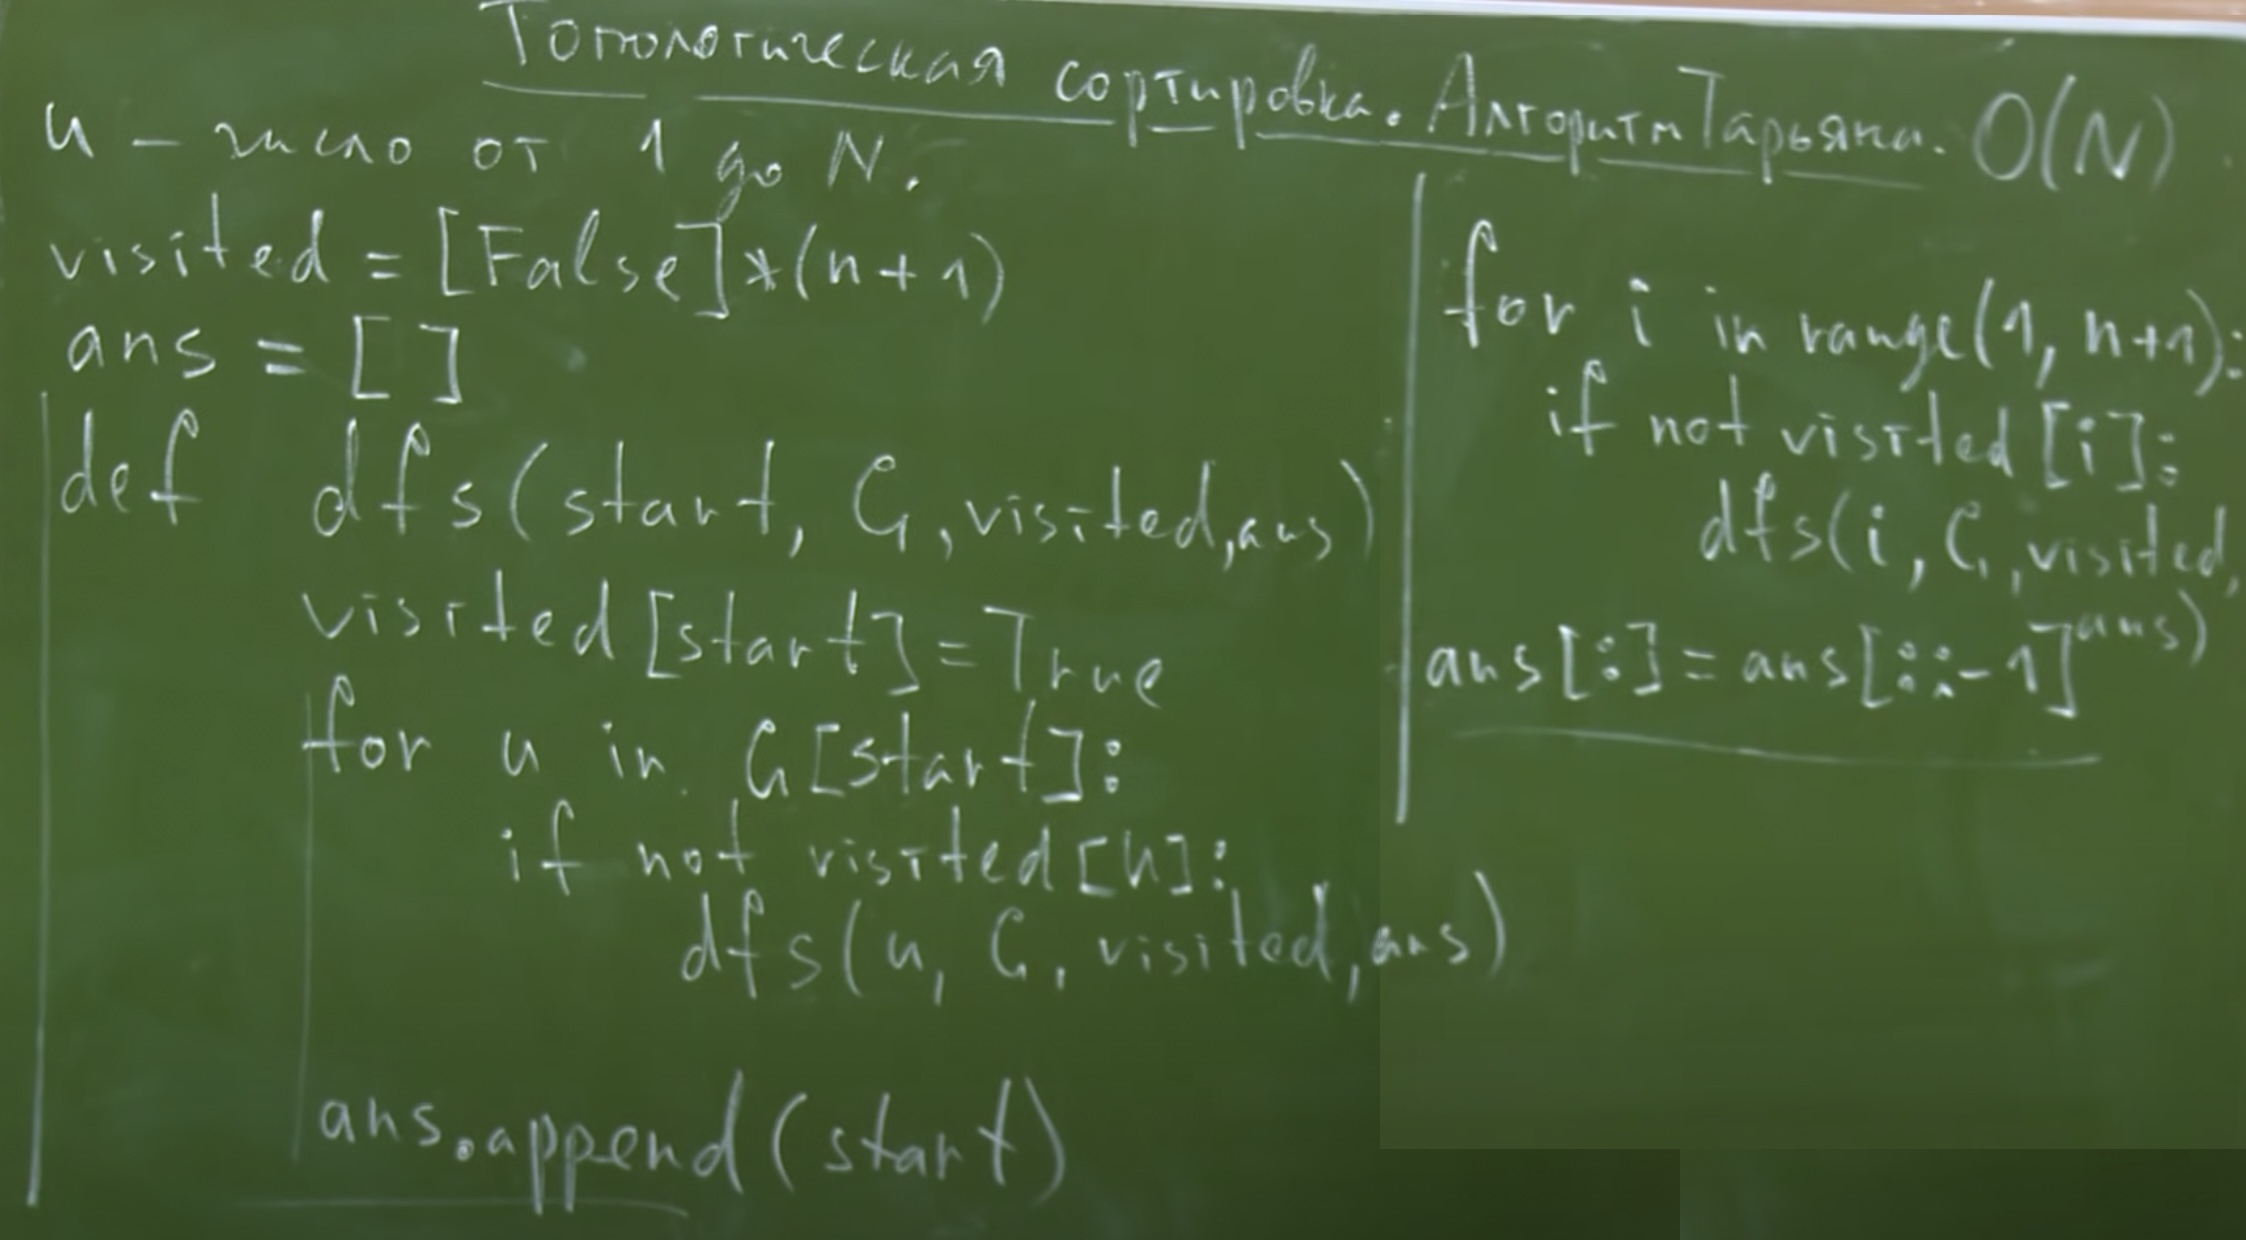 Топологическая сортировка. Алгоритм Тарьяна. O(N)
u – число от 1 до N.
visited = [False]*(n+1)
ans = []
def dfs(start, G, visited, ans)
visited[start]=True
for u in G[start]:
if not visited[u]:
dfs(u, G, visited, ans)
ans.append(start)
for i in range(1, n+1):
if not visited[i]:
dfs(i, G, visited,
ans)
ans[:] = ans[::-1]